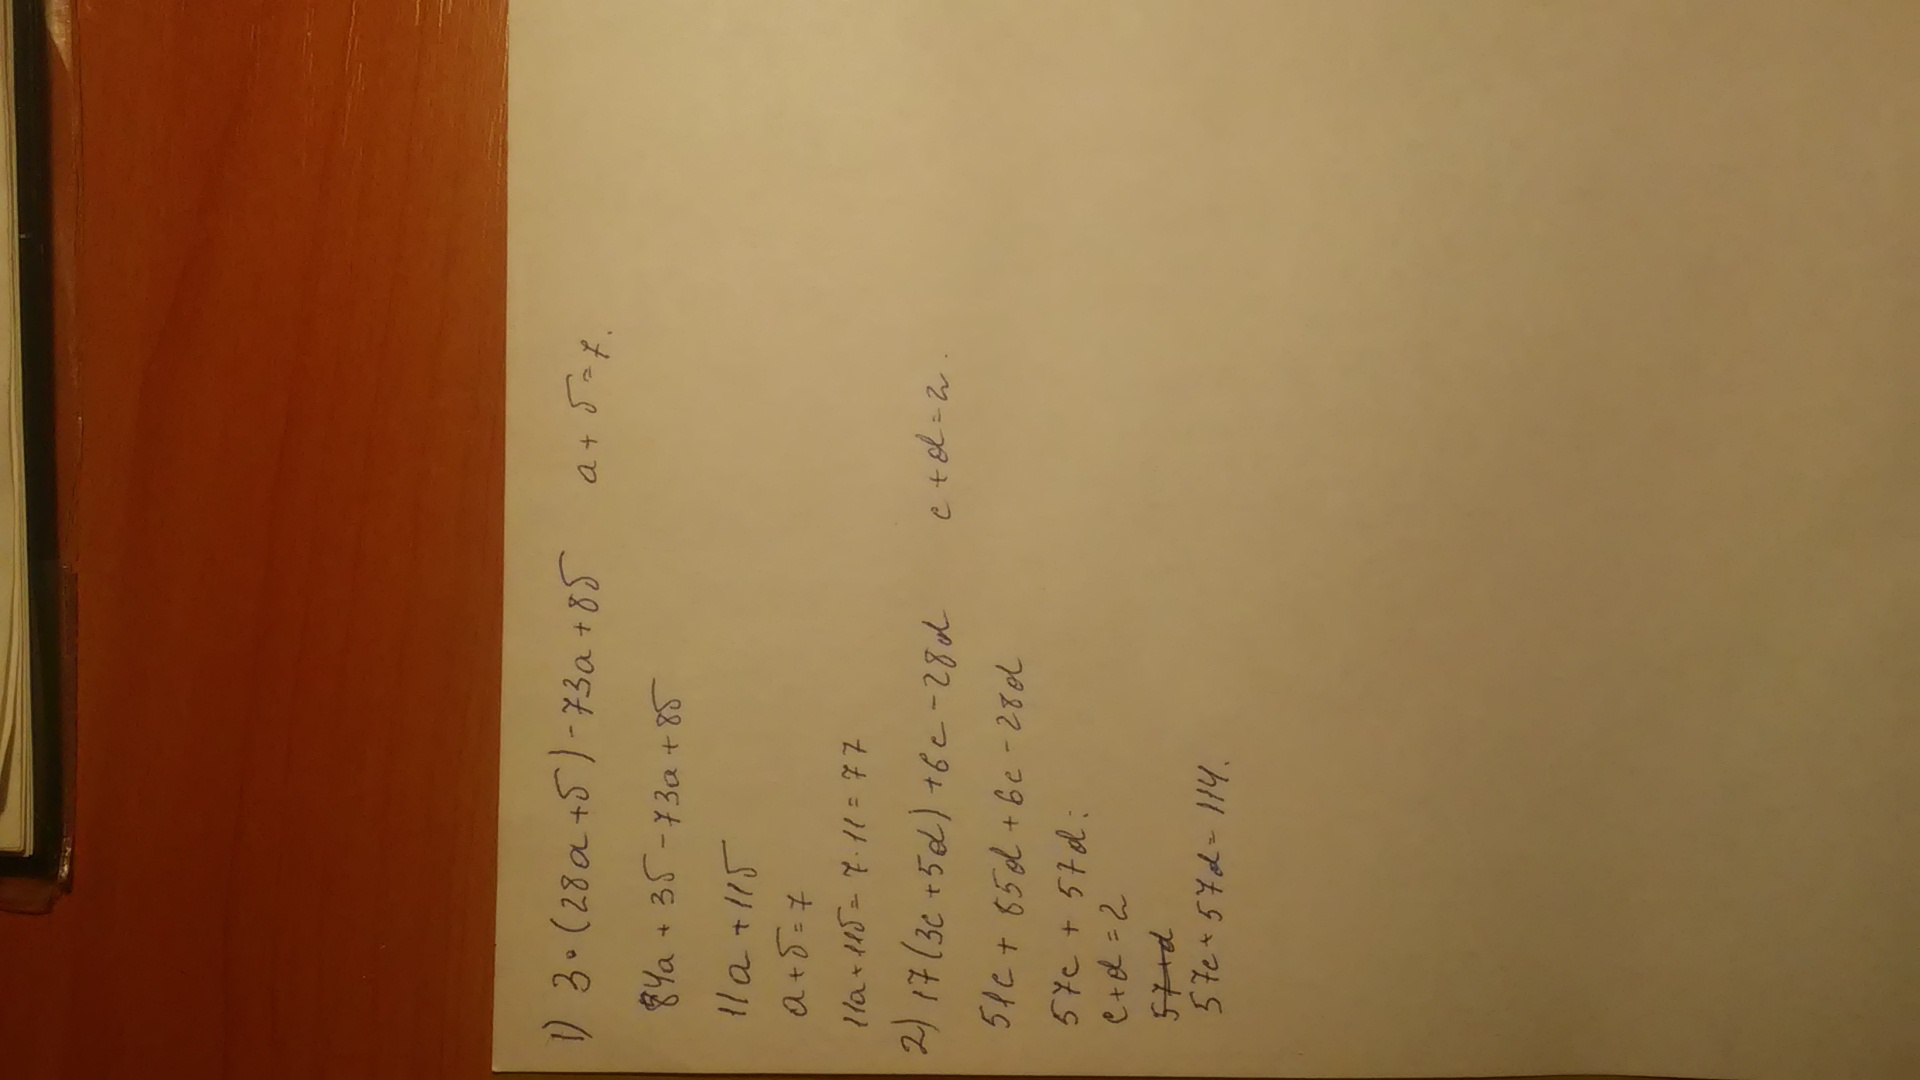 1) 3·(28а+б)-73а+8б а+б=7.
84а+3б-73а+8б
11а+11б
а+б=7
11а+11б=7·11=77
2) 17(3c+5d)+6c-28d c+d=2.
51c+85d+6c-28d
57c+57d:
c+d=2
57+d
57c+57d=114.